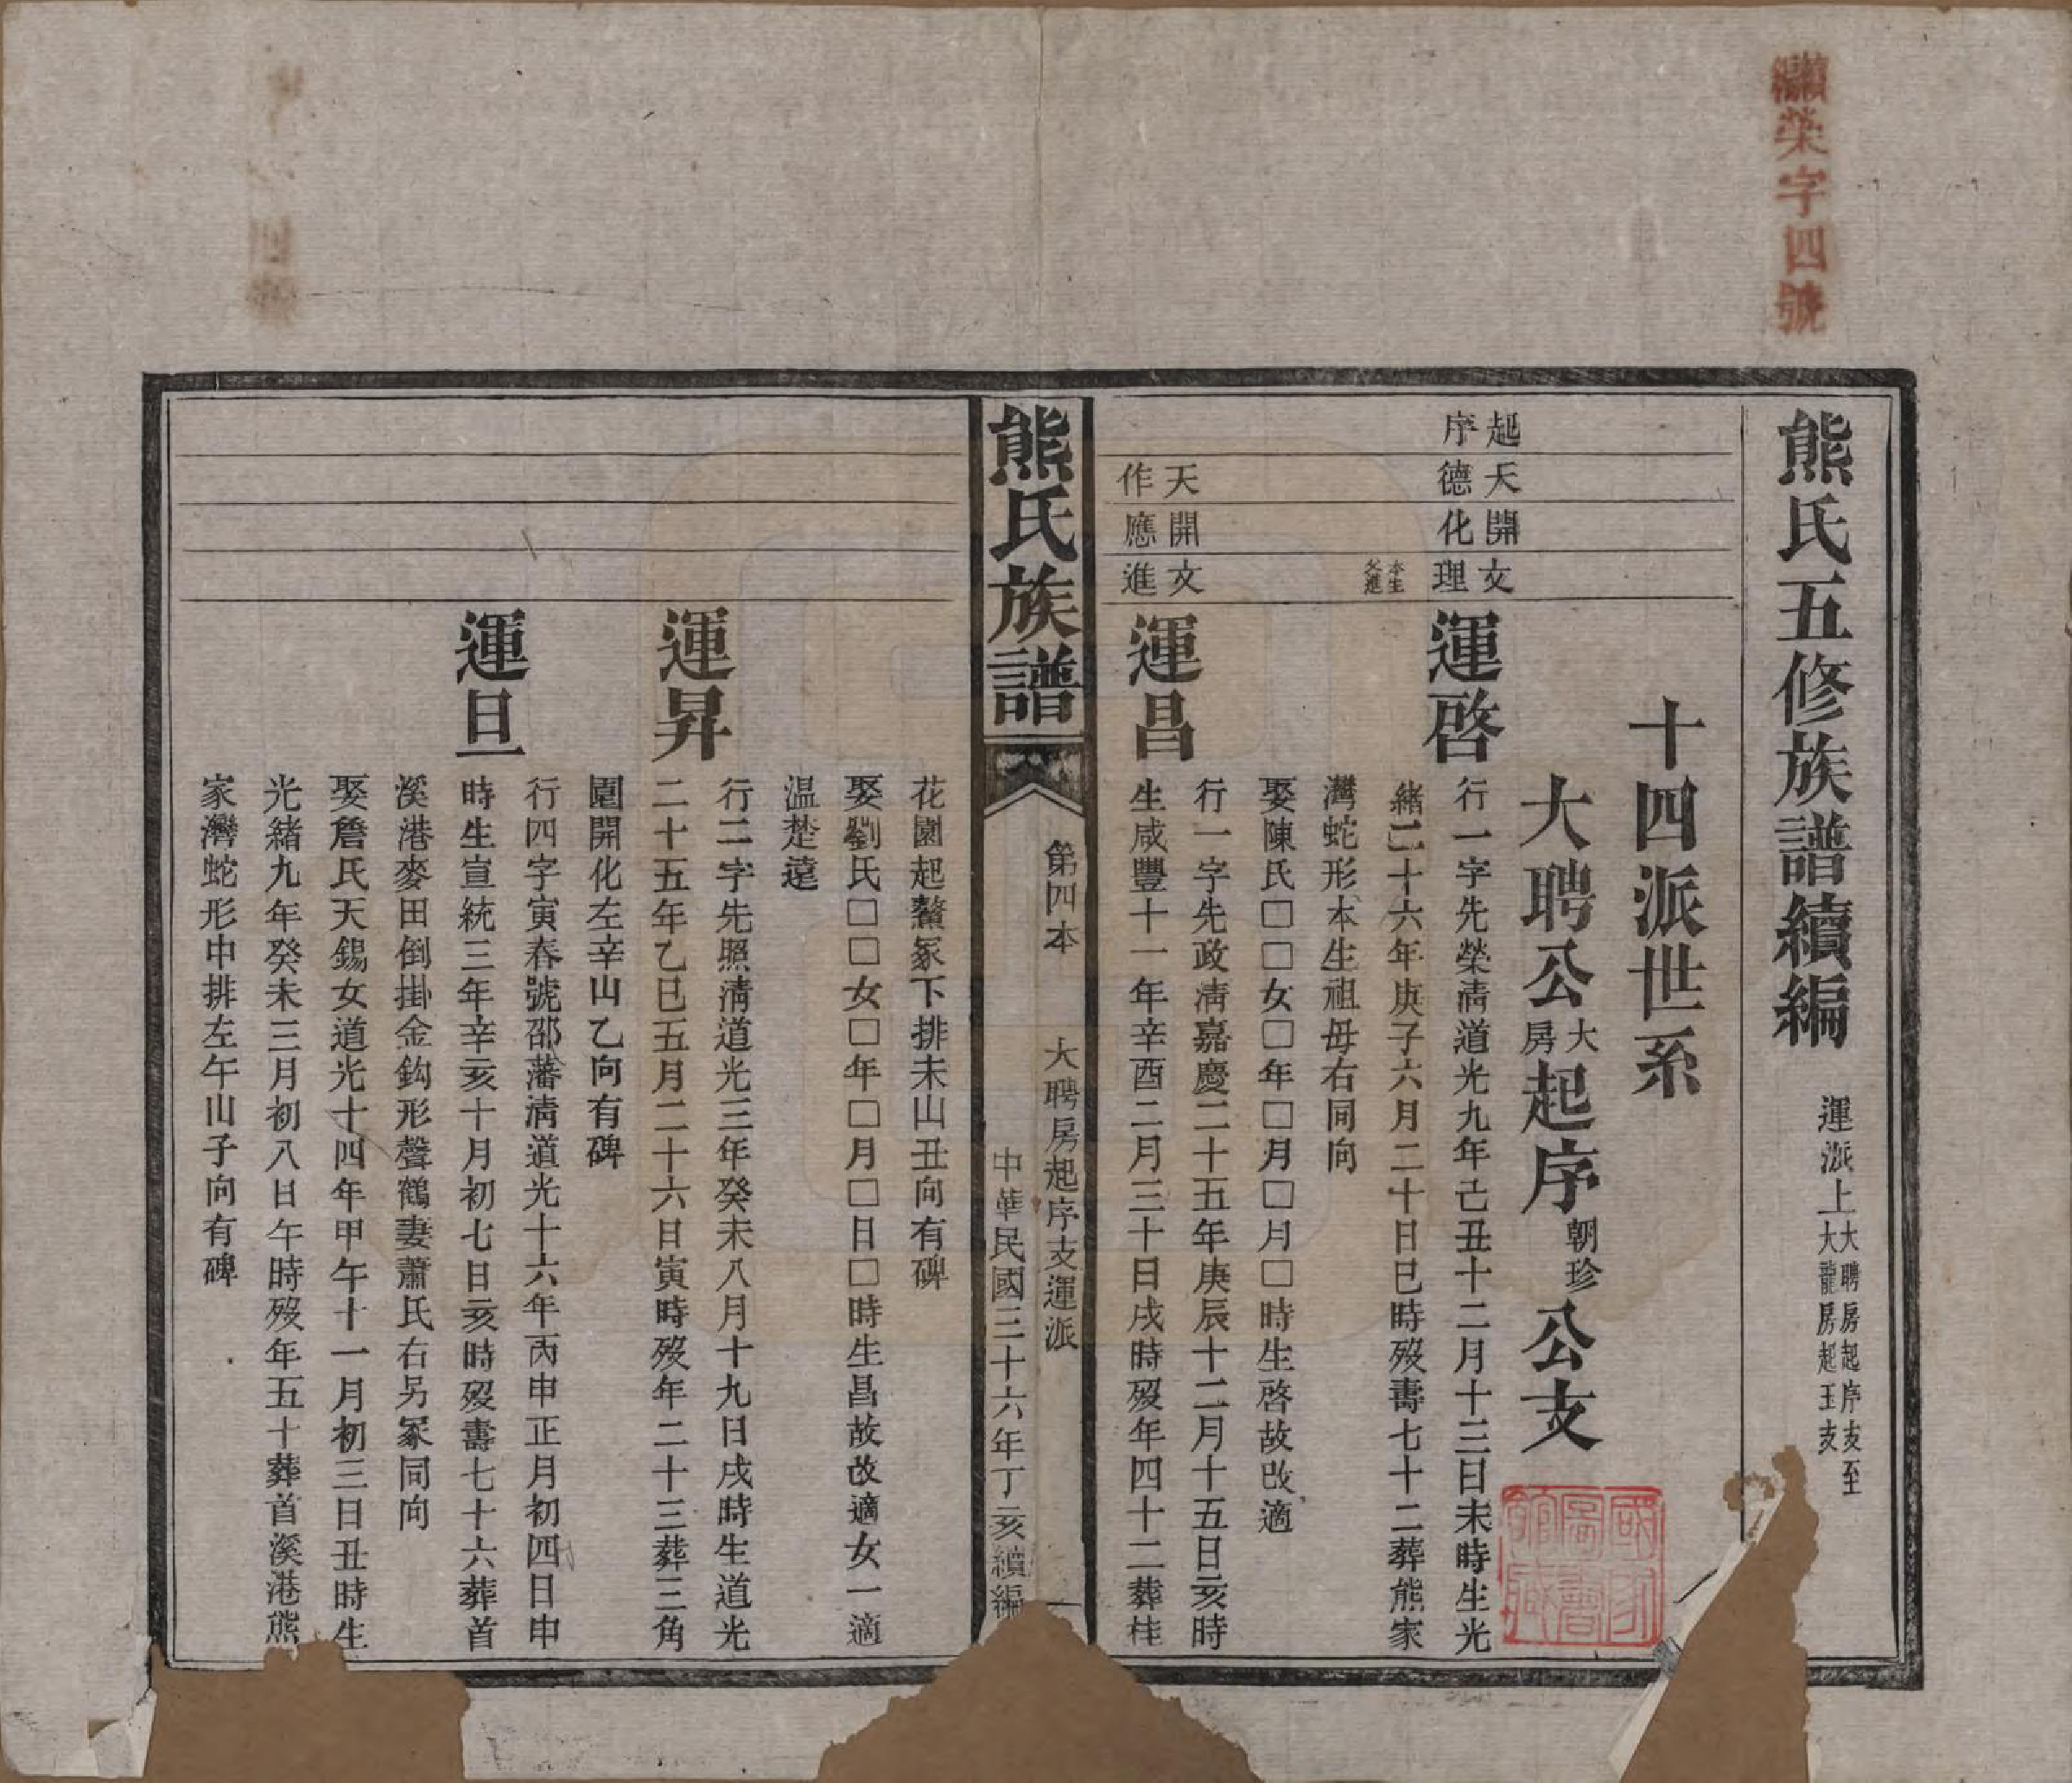 續編榮字四號
熊氏五修族譜續編 運派上大聘房起序支至大龍房起玉支
十四派世系
大聘公大房起序朝珍公支
起序
天德
開化
文理
本生父進
運啓
行一字先榮清道光九年己丑十二月十三日未時生光
緒二十六年庚子六月二十日巳時歿壽七十二葬熊家
灣蛇形本生祖母右同向
娶陳氏□□女□年□月□日□時生啓故改適
天作
開應
文進
運昌
行一字先政清嘉慶二十五年庚辰十二月十五日亥時
生咸豐十一年辛酉二月三十日戌時歿年四十二葬桂
熊氏族譜
第四本 大聘房起序支運派 一
中華民國三十六年丁亥續編
花園起鰲冢下排未山丑向有碑
娶劉氏□□女□年□月□日□時生昌故改適女一適
温楚遠
運昇
行二字先照清道光三年癸未八月十九日戌時生道光
二十五年乙巳五月二十六日寅時歿年二十三葬三角
園開化左辛山乙向有碑
運旦
行四字寅春號邵藩清道光十六年丙申正月初四日申
時生宣統三年辛亥十月初七日亥時歿壽七十六葬首
溪港麥田倒掛金鈎形聲鶴妻蕭氏右另冢同向
娶詹氏天錫女道光十四年甲午十一月初三日丑時生
光緒九年癸未三月初八日午時歿年五十葬首溪港熊
家灣蛇形中排左午山子向有碑
國家圖書館藏